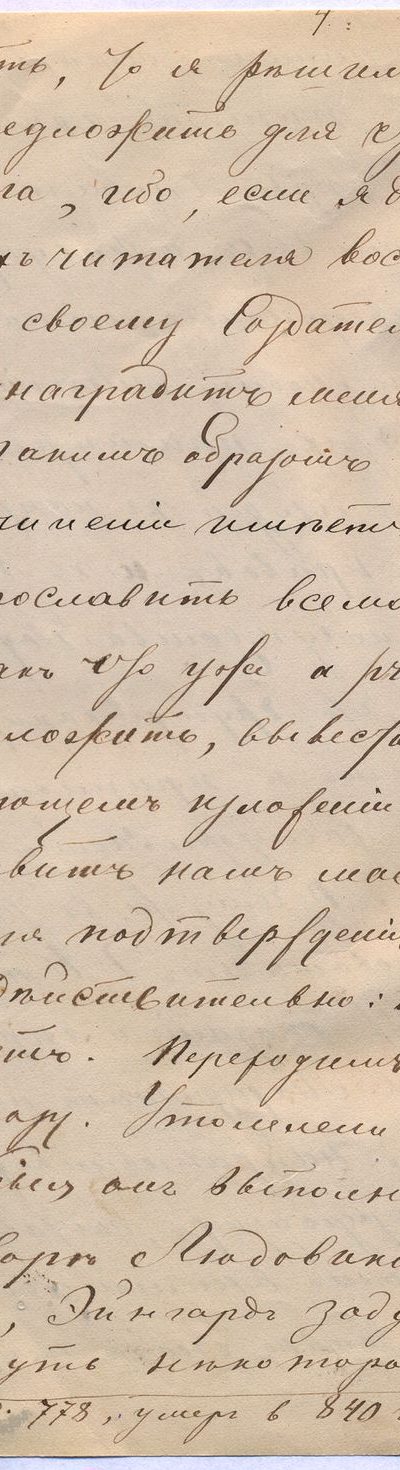 4.
ть, что я решил
едложить для
га, ибо, если я
хъ читателя вос
своему Создател
наградитъ меня
такимъ образомъ
чиненіи имѣетъ
рославить всемо
акъ что уже а
ложить, вывеста
ющемъ изложеніи
витъ намъ
ія подтвержденія
Дѣйствительно:
етъ. Переходимъ
ару. Утомлени
былъ онъ выполн
Людовик
, Эйнгардъ заду
уть некотора
778, умеръ в 840